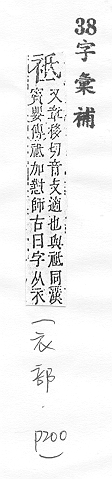 38 字彙補
衹 又章移切音支適也與祗同漢
竇嬰傳祗加懟師古曰字从衣
(衣部．p200)